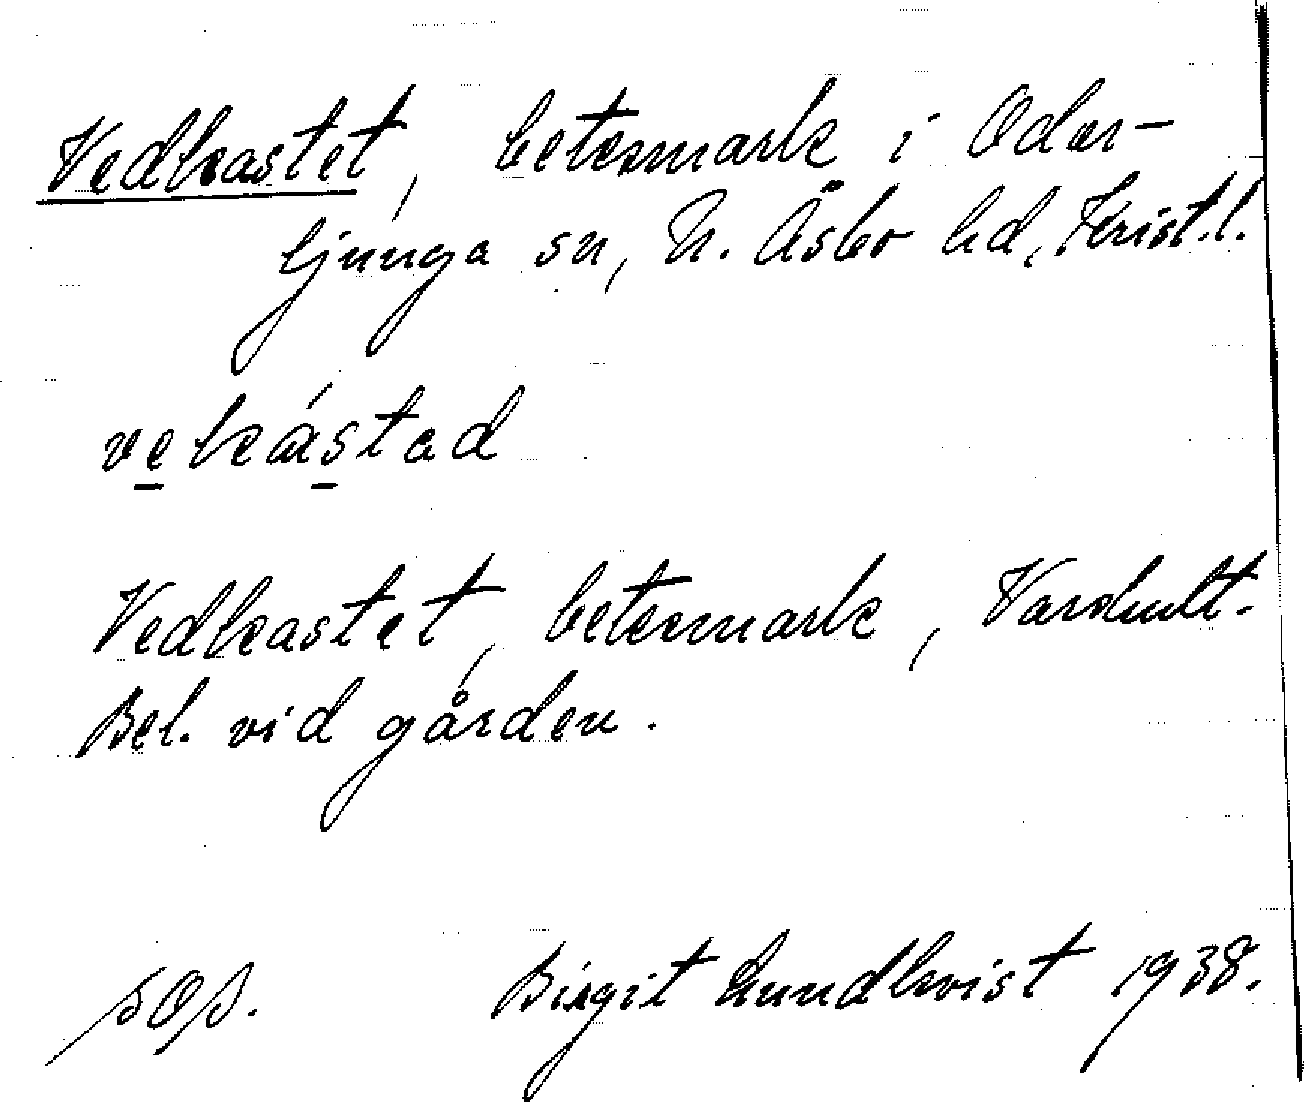 Vedkastet, betesmark i Oder-
ljunga sn, N. Åsbo hd, Krist.l.
vekástad
Vedkastet, betesmark, Varshult.
Bel. vid gården.
sos. Birgit Lundkvist 1938.